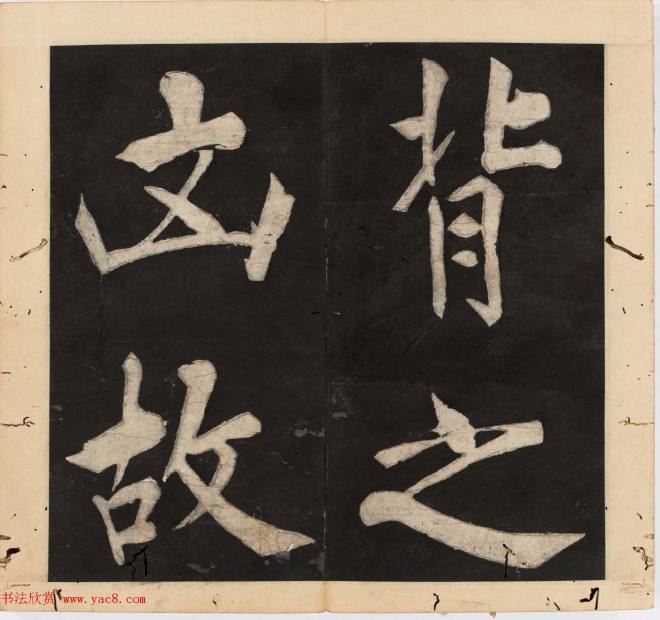 背之
㐫故
书法欣赏 www.yac8.com